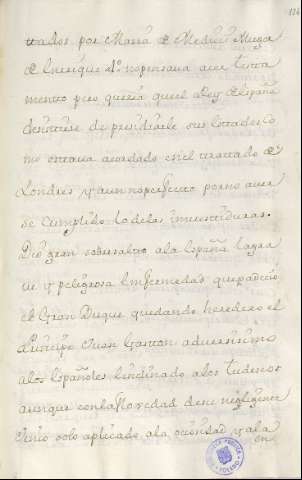 trados por Maria de Medicis Muger
de Enrique 4º no pensava aver testa
mento pero queria que el Rey de España
desistiese de presidiarle sus estados co
mo estava acordado en el tractado de
Londres y aun no perfecto por no aver
se cumplido lo de las investiduras.
Dió gran sobresalto a la España la gra
ve y peligrosa Enfermedad que padeció
el Gran Duque quedando heredero el
Principe Juan Gaston adversisimo
a los Españoles e inclinado a los tudescos
aunque con la floxedad de su negligente
Genio solo aplicado a la ociosidad y a la